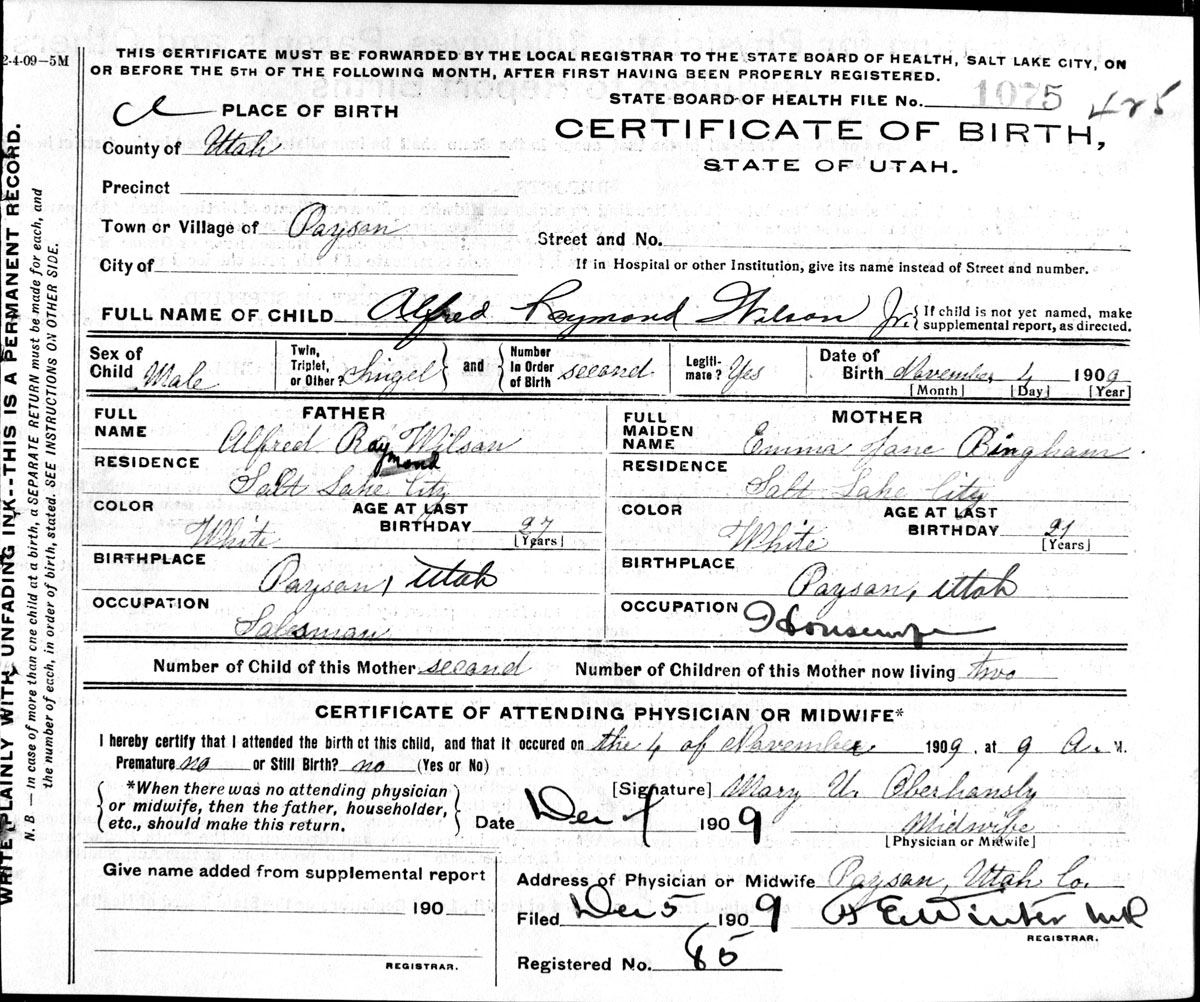 2-4-09—5M
THIS CERTIFICATE MUST BE FORWARDED BY THE LOCAL REGISTRAR TO THE STATE BOARD OF HEALTH, SALT LAKE CITY, ON
OR BEFORE THE 5TH OF THE FOLLOWING MONTH, AFTER FIRST HAVING BEEN PROPERLY REGISTERED.
STATE BOARD OF HEALTH FILE No. 1075 425
PLACE OF BIRTH
CERTIFICATE OF BIRTH,
STATE OF UTAH.
County of Utah
Precinct
Town or Village of Payson
Street and No.
City of
If in Hospital or other Institution, give its name instead of Street and number.
FULL NAME OF CHILD Alfred Raymond Wilson Jr. {If child is not yet named, make
supplemental report, as directed.
Sex of Child Male
Twin, Triplet, or Other? Singel } and { Number In Order of Birth second
Legiti-mate? Yes
Date of Birth November 4 1909
[Month] [Day] [Year]
FATHER
FULL NAME Alfred Raymond Wilson
RESIDENCE Salt Lake City
COLOR White
AGE AT LAST BIRTHDAY 27
[Years]
BIRTHPLACE Payson, Utah
OCCUPATION Salesman
MOTHER
FULL MAIDEN NAME Emma Jane Bingham
RESIDENCE Salt Lake City
COLOR White
AGE AT LAST BIRTHDAY 21
[Years]
BIRTHPLACE Payson, Utah
OCCUPATION Housewife
Number of Child of this Mother second Number of Children of this Mother now living two
CERTIFICATE OF ATTENDING PHYSICIAN OR MIDWIFE*
I hereby certify that I attended the birth of this child, and that it occured on the 4 of November 1909, at 9 A. M.
Premature no or Still Birth? no (Yes or No)
*When there was no attending physician
or midwife, then the father, householder,
etc., should make this return.
[Signature] Mary U. Oberhansly
Date Dec 4 1909 Midwife
[Physician or Midwife]
Give name added from supplemental report
190
REGISTRAR.
Address of Physician or Midwife Payson, Utah Co.
Filed Dec 5 1909 Winter MD
REGISTRAR.
Registered No. 85
WRITE PLAINLY WITH UNFADING INK--THIS IS A PERMANENT RECORD.
N. B. — In case of more than one child at a birth, a SEPARATE RETURN must be made for each, and
the number of each, in order of birth, stated. SEE INSTRUCTIONS ON OTHER SIDE.